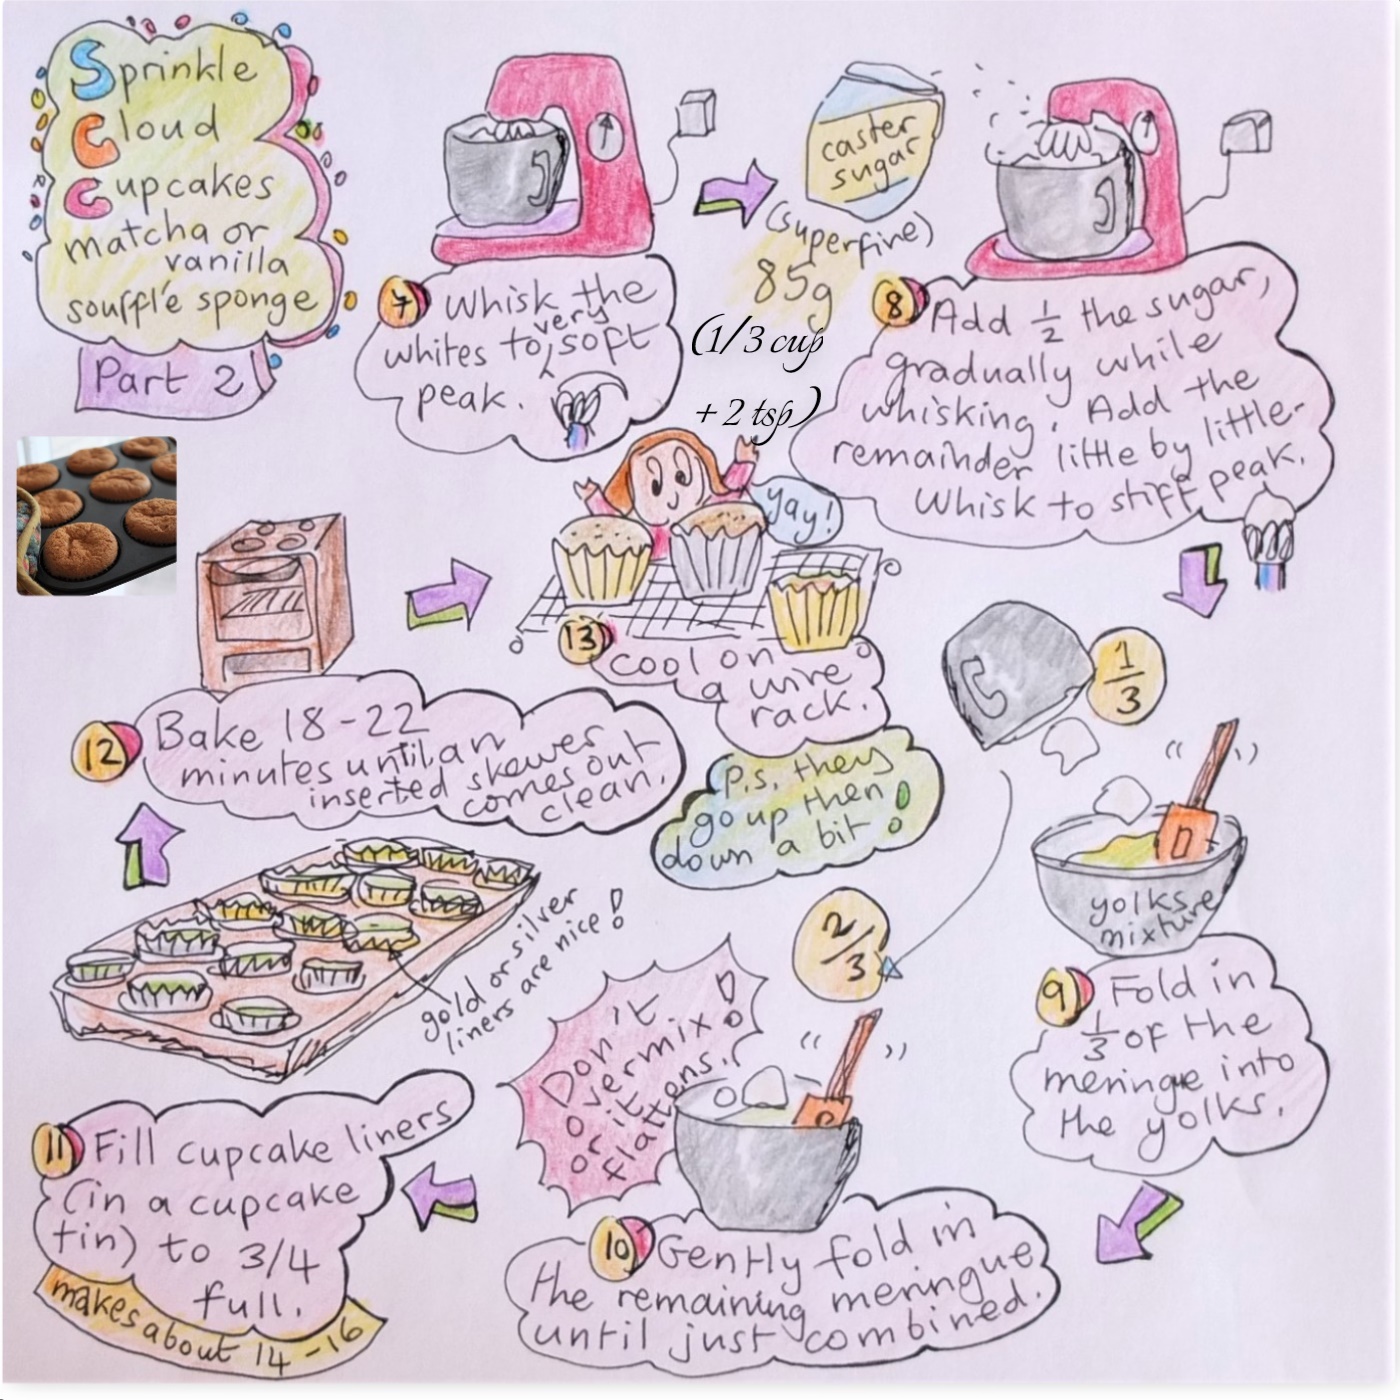 Sprinkle
Cloud
Cupcakes
matcha or
vanilla
soufflé sponge
Part 2
7 Whisk the
whites to very soft
peak.
caster
sugar
(superfine)
85g
(1/3 cup
+ 2 tsp)
8 Add 1/2 the sugar,
gradually while
whisking. Add the
remainder little by little.
Whisk to stiff peak.
1/3
yolks
mixture
9 Fold in
1/3 of the
meringe into
the yolks.
2/3
Don't
overmix!
or it
flattens!
10 Gently fold in
the remaining meringue
until just combined.
11 Fill cupcake liners
(in a cupcake
tin) to 3/4
full.
makes about 14-16
gold or silver
liners are nice!
12 Bake 18-22
minutes until an
inserted skewer
comes out
clean.
yay!
13 Cool on
a wire
rack.
P.S. they
go up then
down a bit!